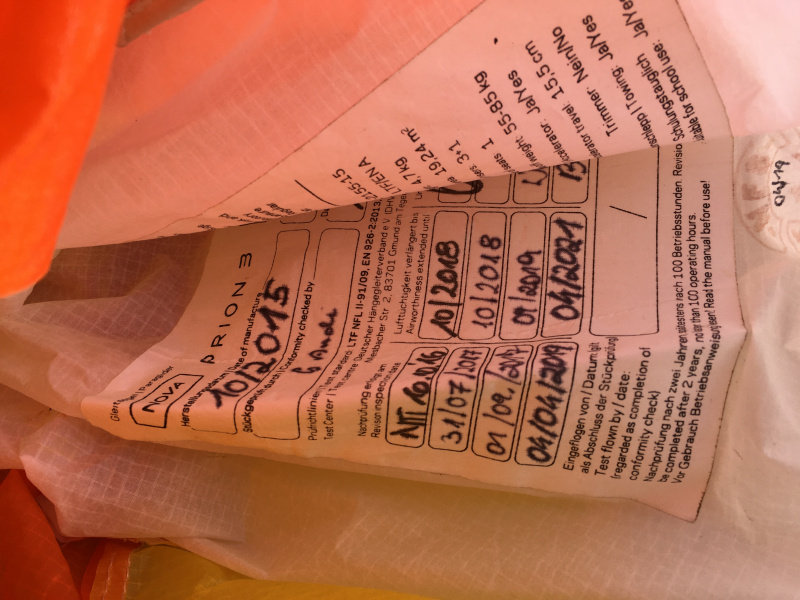 NOVA
PRION 3
10/2015
Stückgeprüft durch | Conformity checked by
LTF NFL II-91/09, EN 926-2:2013,
Deutscher Hängegleiterverband e.V. (DHV)
Miesbacher Str. 2, 83701 Gmund am
Nachprüfung erfolgt am
Revision inspection date
Lufttüchtigkeit verlängert bis
Airworthiness extended until
10/2018
31/07/2017 10/2018
01/09/2017 09/2019
04/04/2019 04/2021
Eingeflogen von / Datum
als Abschluss der Stückprüfung
Test flown by / date:
(regarded as completion of
conformity check)
/
Nachprüfung nach zwei Jahren spätestens nach 100 Betriebsstunden Revision
be completed after 2 years, no later than 100 operating hours.
Vor Gebrauch Betriebsanweisung lesen! Read the manual before use!
0155-15
LTF/EN A
4,7 kg
19,24 m²
3+1
1
55-85 kg
Ja/Yes
15,5 cm
Trimmer: Nein/No
Towing: Ja/Yes
Schulungstauglich
for school use: Ja/Yes
04/19